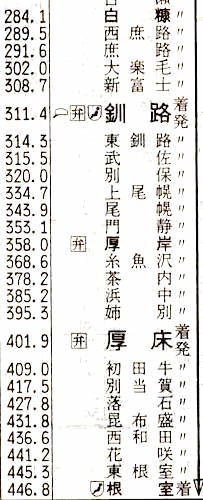 284.1 白糠 〃
289.5 西庶路 〃
291.6 庶路 〃
302.0 大楽毛 〃
308.7 新富士 〃
311.4 弁 釧路 着発
314.3 東釧路 〃
315.5 武佐 〃
320.0 別保 〃
334.7 上尾幌 〃
343.9 尾幌 〃
353.1 門静 〃
358.0 弁 厚岸 〃
368.6 糸魚沢 〃
378.2 茶内 〃
385.2 浜中 〃
395.3 姉別 〃
401.9 弁 厚床 着発
409.0 初田牛 〃
417.5 別当賀 〃
427.8 落石 〃
431.8 昆布盛 〃
436.6 西和田 〃
441.2 花咲 〃
445.3 東根室 〃
446.8 根室 着